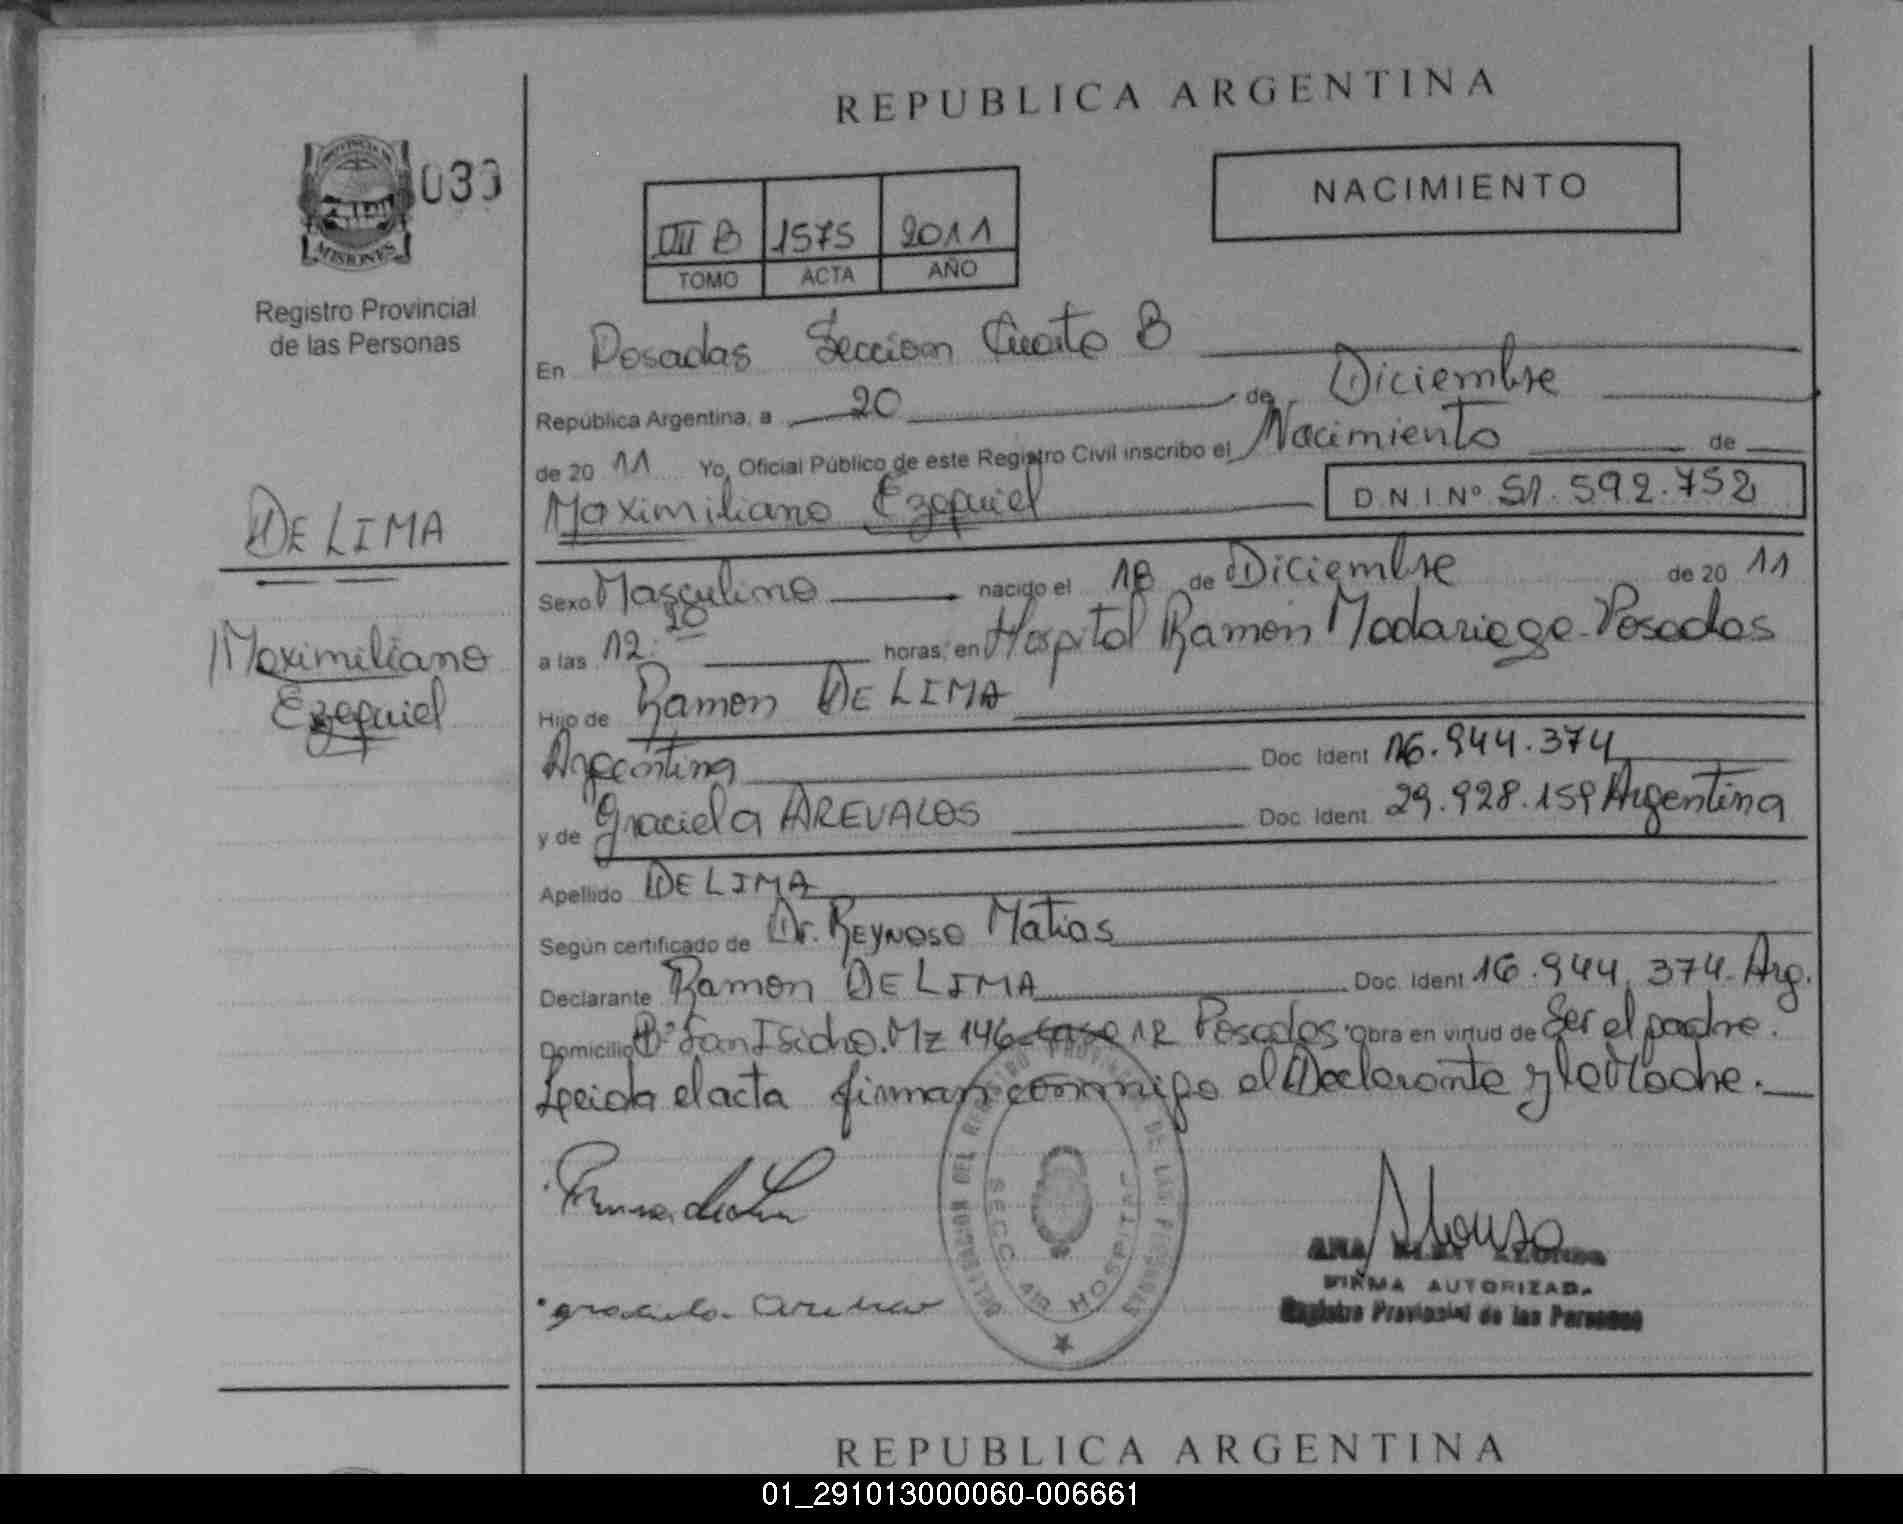 REPUBLICA ARGENTINA
PROVINCIA DE
MISIONES
Registro Provincial
de las Personas
NACIMIENTO
III B 1575 2011
TOMO ACTA AÑO
En Posadas Seccion Cuarta B
República Argentina, a 20 de Diciembre
de 20 11 Yo, Oficial Público de este Registro Civil inscribo el Nacimiento de
Maximiliano Ezequiel D N I Nº 51.592.752
DE LIMA
Maximiliano
Ezequiel
Sexo Masculino nacido el 18 de Diciembre de 20 11
a las 12.20 horas, en Hospital Ramon Madariaga - Posadas
Hijo de Ramon DE LIMA
Argentina Doc Ident 16.944.374
y de Graciela AREVALOS Doc Ident 29.928.159 Argentina
Apellido DE LIMA
Según certificado de Dr. REYNOSO Matias
Declarante Ramon DE LIMA Doc Ident 16.944.374 - Arg.
Domicilio Bº San Isidro. Mz 146 casa 12 Posadas. Obra en virtud de Ser el padre.
Leida el acta firman conmigo el Declarante y la Madre.
SECC. HOSPITAL
FIRMA AUTORIZADA
Registro Provincial de las Personas
REPUBLICA ARGENTINA
01_291013000060-006661